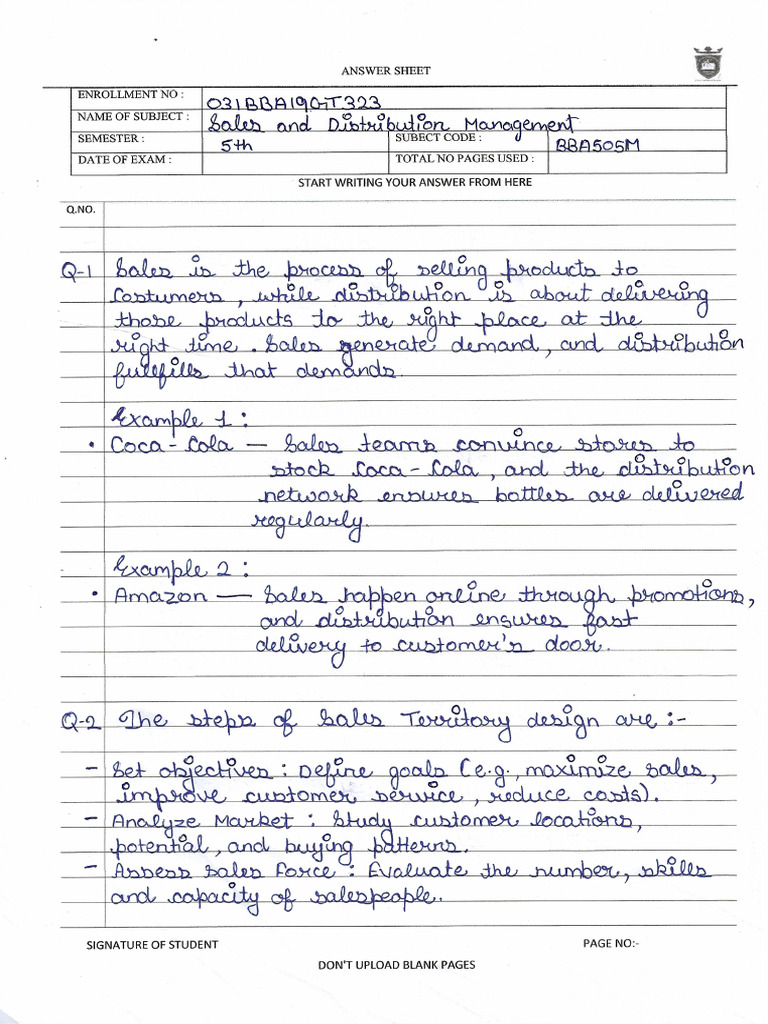 ANSWER SHEET
ENROLLMENT NO : 031BBA19GT323
NAME OF SUBJECT : Sales and Distribution Management
SEMESTER : 5th SUBECT CODE : BBA505M
DATE OF EXAM : TOTAL NO PAGES USED :
START WRITING YOUR ANSWER FROM HERE
Q.NO.
Q-1 Sales is the process of selling products to
Costumers, while distribution is about delivering
those products to the right place at the
right time. Sales generate demand, and distribution
fullfills that demands.
Example 1 :
• Coca-Cola — Sales teams convince stores to
stock Coca-Cola, and the distribution
network ensures bottles are delivered
regularly.
Example 2 :
• Amazon — Sales happen online through promotions,
and distribution ensures fast
delivery to customer's door.
Q-2 The steps of Sales Territory design are :-
- Set objectives : Define goals (e.g., maximize sales,
improve customer service, reduce costs).
- Analyze Market : Study customer locations,
potential, and buying patterns.
- Assess Sales Force : Evaluate the number, skills
and capacity of salespeople.
SIGNATURE OF STUDENT PAGE NO:-
DON'T UPLOAD BLANK PAGES